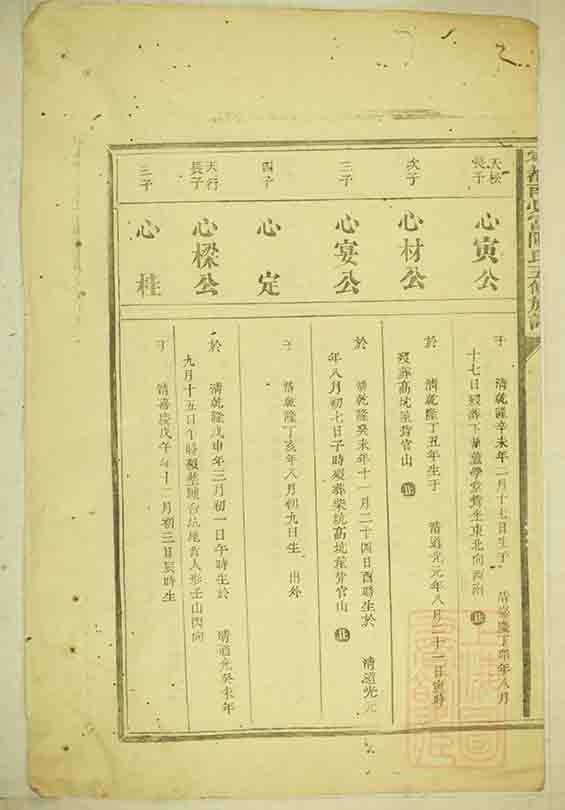 天松
長子
心寅公
于　清乾隆辛未年二月十七日生于　清嘉慶丁卯年八月
十七日歿葬下
東北向西南
次子
心材公
於　清乾隆丁丑年生于　清道光元年八月二十一日寅時
歿葬高坑
官山
三子
心宴公
於　清乾隆癸未年十一月二十四日酉時生於　清道光元
年八月初七日子時歿葬柴坑高坑
官山
四子
心定
于　清乾隆丁亥年八月初九日生　出外
天行
長子
心樑公
於　清乾隆戊申年三月初一日午時生於　清道光癸未年
九月十五日午時歿葬
台坑
人形壬山丙向
三子
心桂
于　清嘉慶戊午年十二月初三日辰時生